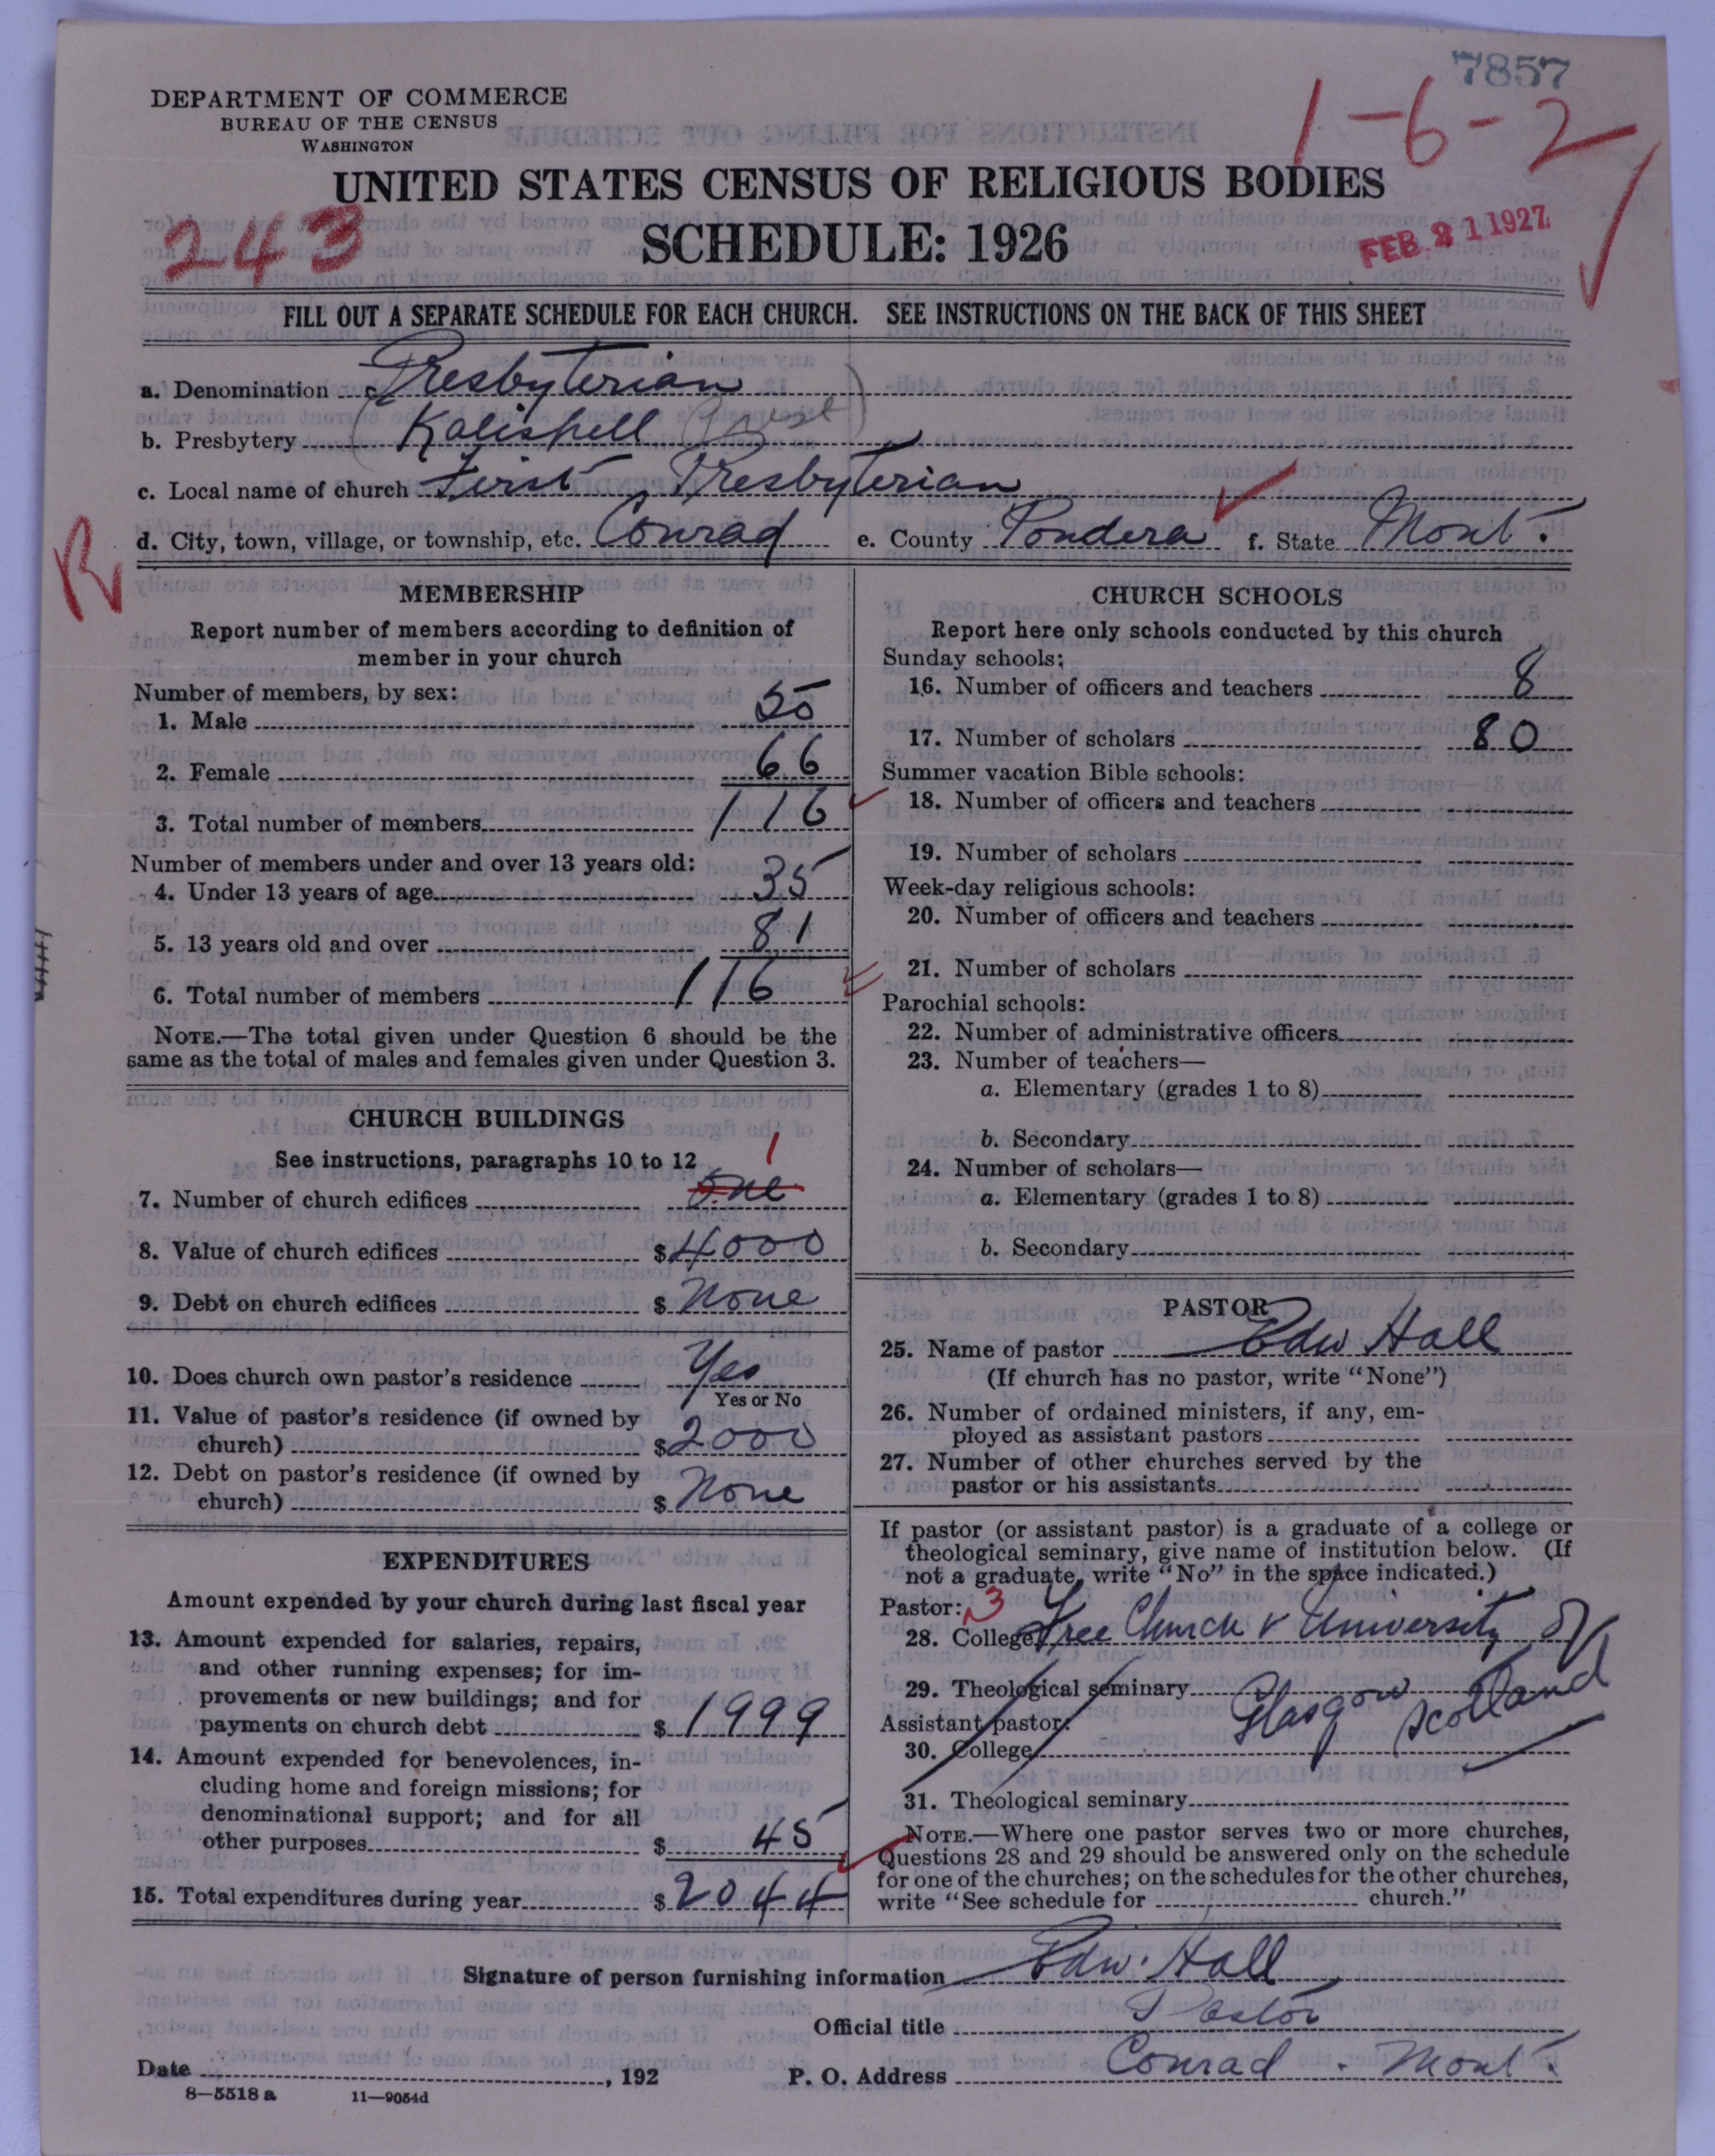 7857
DEPARTMENT OF COMMERCE
BUREAU OF THE CENSUS
WASHINGTON
1-6-2
UNITED STATES CENSUS OF RELIGIOUS BODIES
243
SCHEDULE: 1926
FEB 21 1927
FILL OUT A SEPARATE SCHEDULE FOR EACH CHURCH. SEE INSTRUCTIONS ON THE BACK OF THIS SHEET
a. Denomination Presbyterian
b. Presbytery Kalispell
c. Local name of church First Presbyterian
d. City, town, village, or township, etc. Conrad e. County Pondera f. State Mont.
R
MEMBERSHIP
Report number of members according to definition of
member in your church
Number of members, by sex:
1. Male 50
2. Female 66
3. Total number of members 116
Number of members under and over 13 years old:
4. Under 13 years of age 35
5. 13 years old and over 81
6. Total number of members 116
NOTE.—The total given under Question 6 should be the
same as the total of males and females given under Question 3.
CHURCH BUILDINGS
See instructions, paragraphs 10 to 12
1
7. Number of church edifices one
8. Value of church edifices $ 4000
9. Debt on church edifices $ None
10. Does church own pastor's residence Yes
Yes or No
11. Value of pastor's residence (if owned by
church) $ 2000
12. Debt on pastor's residence (if owned by
church) $ None
EXPENDITURES
Amount expended by your church during last fiscal year
13. Amount expended for salaries, repairs,
and other running expenses; for im-
provements or new buildings; and for
payments on church debt $ 1999
14. Amount expended for benevolences, in-
cluding home and foreign missions; for
denominational support; and for all
other purposes $ 45
15. Total expenditures during year $ 2044
CHURCH SCHOOLS
Report here only schools conducted by this church
Sunday schools:
16. Number of officers and teachers 8
17. Number of scholars 80
Summer vacation Bible schools:
18. Number of officers and teachers
19. Number of scholars
Week-day religious schools:
20. Number of officers and teachers
21. Number of scholars
Parochial schools:
22. Number of administrative officers
23. Number of teachers—
a. Elementary (grades 1 to 8)
b. Secondary
24. Number of scholars—
a. Elementary (grades 1 to 8)
b. Secondary
PASTOR
25. Name of pastor Edw Hall
(If church has no pastor, write "None")
26. Number of ordained ministers, if any, em-
ployed as assistant pastors
27. Number of other churches served by the
pastor or his assistants
If pastor (or assistant pastor) is a graduate of a college or
theological seminary, give name of institution below. (If
not a graduate, write "No" in the space indicated.)
Pastor: 3
28. College Free Church & University of
29. Theological seminary Glasgow Scotland
Assistant pastor:
30. College
31. Theological seminary
NOTE.—Where one pastor serves two or more churches,
Questions 28 and 29 should be answered only on the schedule
for one of the churches; on the schedules for the other churches,
write "See schedule for church."
Signature of person furnishing information Edw. Hall
Official title Pastor
Date , 192 P. O. Address Conrad. Mont.
8—5518 a 11—9054d